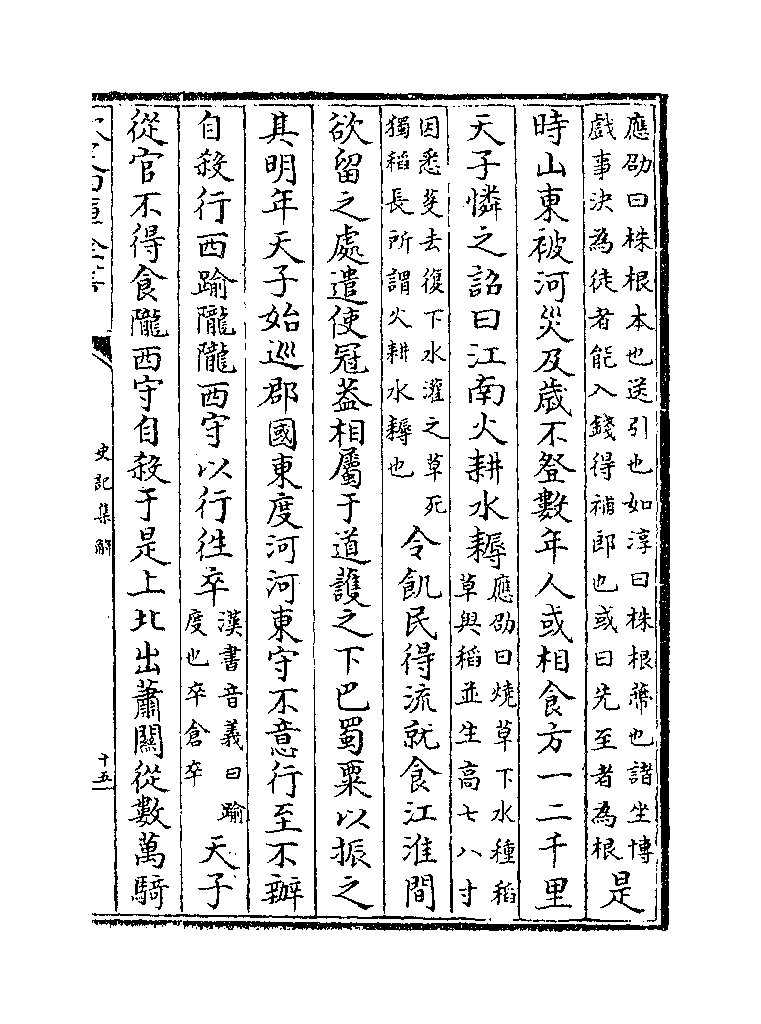 應劭曰株根本也送引也如淳曰株根蔕也諸坐博
戲事決為徒者能入錢得補郎也或曰先至者為根
是
時山東被河災及歲不登數年人或相食方一二千里
天子憐之詔曰江南火耕水耨
應劭曰燒草下水種稻
草與稻並生高七八寸
因悉芟去復下水灌之草死
獨稻長所謂火耕水耨也
令飢民得流就食江淮間
欲留之處遣使冠葢相屬于道護之下巴蜀粟以振之
其明年天子始巡郡國東度河河東守不意行至不辦
自殺行西踰隴隴西守以行徃卒
漢書音義曰踰
度也卒倉卒
天子
從官不得食隴西守自殺于是上北出蕭關從數萬騎
史記集解
十五